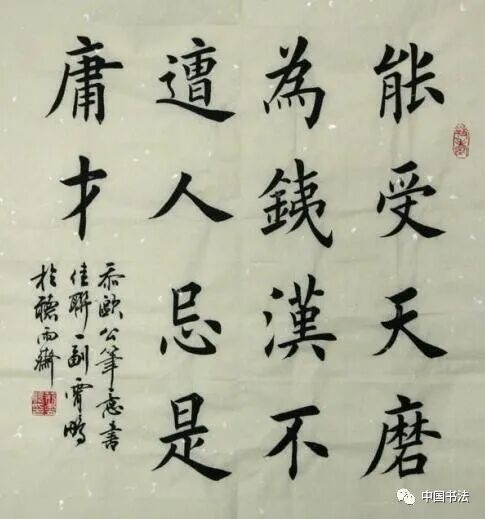 能受天磨
為銕漢不
遭人忌是
庸才
忝歐公筆意書
佳聯一副霄鵬
於聽雨齋
中国书法